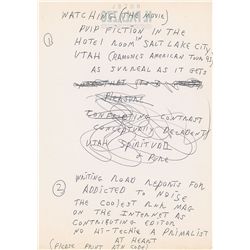 WATCHING (THE MOVIE)
① PULP FICTION IN THE
HOTEL ROOM IN SALT LAKE CITY
UTAH (RAMONES AMERICAN TOUR 95
AS SURREAL AS IT GETS
PLEASURE
CONFLICTING CONTRAST
CONCEPTUALLY DECADENT
UTAH SPIRITUAL
+ PURE
② WRITING ROAD REPORTS FOR
ADDICTED TO NOISE
THE COOLEST ROCK MAG
ON THE INTERNET AS
CONTRIBUTING EDITOR
NO HI-TECHIE A PRIMALIST
AT HEART
(PLEASE PRINT ATN CODE)